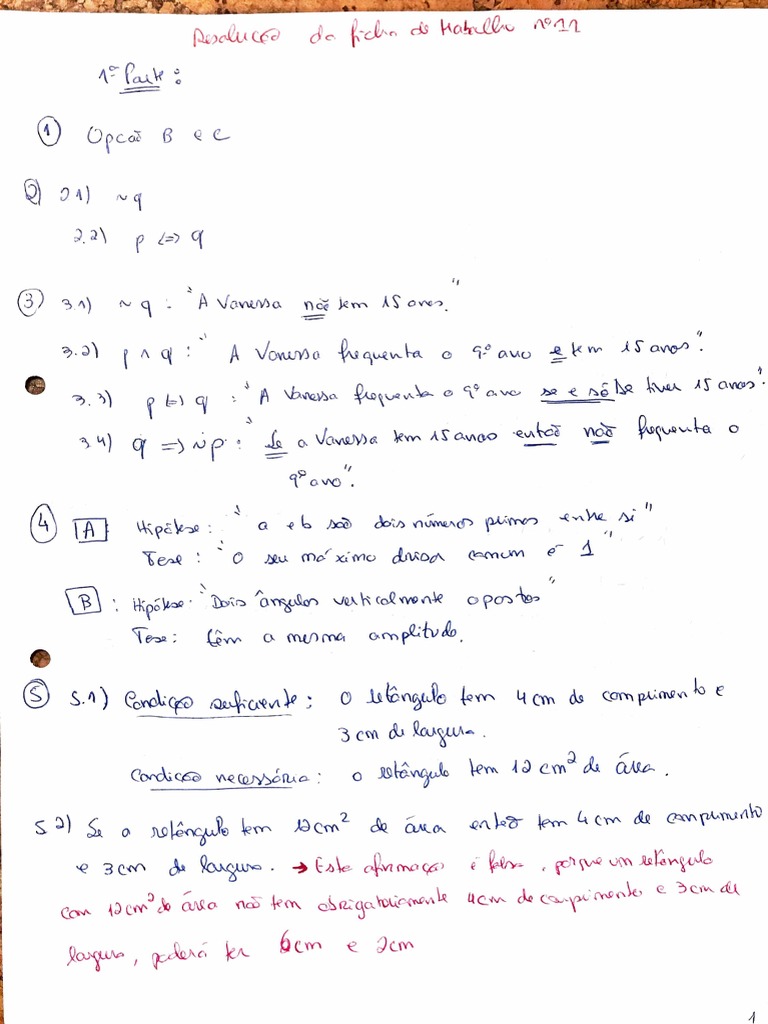 Resolução da ficha de trabalho nº 11
1ª Parte:
① Opção B e C
② 2.1) ~q
2.2) p <=> q
③ 3.1) ~q : "A Vanessa não tem 15 anos."
3.2) p ∧ q : "A Vanessa frequenta o 9º ano e tem 15 anos".
3.3) p <=> q : "A Vanessa frequenta o 9º ano se e só se tiver 15 anos".
3.4) q => ~p : "Se a Vanessa tem 15 anos então não frequenta o
9º ano".
④ A Hipótese: "a e b são dois números primos entre si"
Tese: "O seu máximo divisor comum é 1"
B : Hipótese: "Dois ângulos verticalmente opostos"
Tese: têm a mesma amplitude.
⑤ 5.1) Condição suficiente: O retângulo tem 4 cm de comprimento e
3 cm de largura.
Condição necessária: o retângulo tem 12 cm² de área.
5.2) Se a retângulo tem 12 cm² de área então tem 4 cm de comprimento
e 3 cm de largura. → Esta afirmação é falsa, porque um retângulo
com 12 cm² de área não tem obrigatoriamente 4 cm de comprimento e 3 cm de
largura, poderá ter 6 cm e 2 cm
1